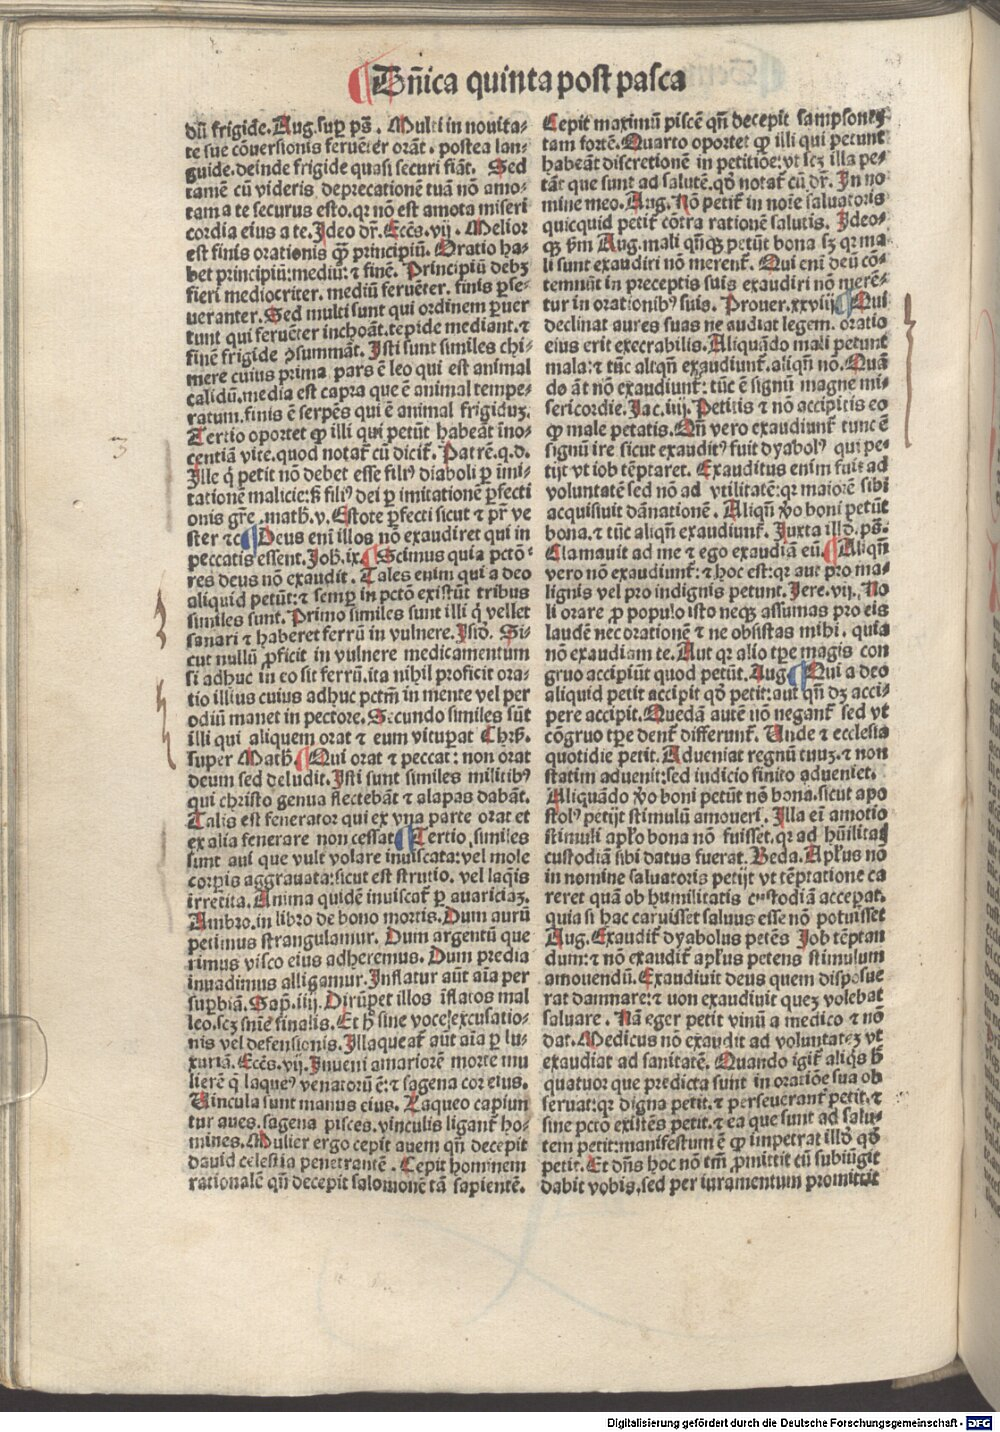 ¶ Dn̄ica quinta post pasca
dū frigide. Aug. sup̲ ps̄. Multi in nouita-
te sue cōuersionis feruēter orāt. postea lan-
guide. deinde frigide quasi securi fiāt. Sed
tamē cū videris deprecationē tuā nō amo-
tam a te securus esto. qr nō est amota miseri
cordia eius a te. Ideo dr̄. Eccēs. vij. Melior
est finis orationis q̄ꝫ principiū. Oratio ha-
bet principiū: mediū: ⁊ finē. Principiū debꝫ
fieri mediocriter. mediū feruēter. finis ꝑse-
ueranter. Sed multi sunt qui ordinem ꝑuer
tunt qui feruēter inchoāt. tepide mediant. ⁊
finē frigide ꝯsummāt. Isti sunt similes chi-
mere cuius prima pars ē leo qui est animal
calidū. media est capra que ē animal tempe-
ratum. finis ē serpēs qui ē animal frigiduꝫ.
Tertio oportet ꝙ illi qui petūt habeāt īno-
centiā vite. quod notat̄ cū dicit̄. Patrē. q. d.
Ille q̇ petit nō debet esse filiꝰ diaboli ꝑ imi-
tationē malicie: s̄ filiꝰ dei ꝑ imitationē ꝑfecti
onis gr̄e. math̄. v. Estote ꝑfecti sicut ⁊ pr̄ ve
ster ⁊c̄ ¶ Deus eni illos nō exaudiret qui in
peccatis essent. Joh. ix. ¶ Scimus quia pctō-
res deus nō exaudit. Tales enim qui a deo
aliquid petūt: ⁊ semꝑ in pctō existūt tribus
similes sunt. Primo similes sunt illi q̇ vellet
sanari ⁊ haberet ferrū in vulnere. Isid̄. Si-
cut nullū ꝓficit in vulnere medicamentum
si adhuc in eo sit ferrū. ita nihil proficit ora-
tio illius cuius adhuc pctm̄ in mente vel per
odiū manet in pectore. Secundo similes sūt
illi qui aliquem orat ⁊ eum vituꝑat Chrs̄.
super Math̄. ¶ Qui orat ⁊ peccat: non orat
deum sed deludit. Isti sunt similes militibꝰ
qui christo genua flectebāt ⁊ alapas dabāt.
Talis est fenerator qui ex vna parte orat et
ex alia fenerare non cessat ¶ Tertio similes
sunt aui que vult volare inuiscata: vel mole
corꝑis aggrauata: sicut est strutio. vel laq̇is
irretita. Anima quidē inuiscat̄ ꝑ auariciaꝫ.
Ambro. in libro de bono mortis. Dum aurū
petimus strangulamur. Dum argentū que
rimus visco eius adheremus. Dum predia
inuadimus alligamur. Inflatur aūt aīa per
suꝑbiā. Sap̄. iiij. Dirūpet illos īflatos mal
leo. scꝫ snīe finalis. Et h̄ sine voce excusatio-
nis vel defensionis. Illaqueat̄ aūt aīa ꝑ lu-
xuriā. Eccēs. vij. Inueni amariorē morte mu
lierē q̄ laqueꝰ venatorū ē: ⁊ sagena cor eius.
Uincula sunt manus eius. Laqueo capiun
tur aues. sagena pisces. vinculis ligant̄ ho-
mines. Mulier ergo cepit auem qn̄ decepit
dauid celestia penetrantē. Cepit hominem
rationalē qn̄ decepit salomonē tā sapientē.
Cepit maximū piscē qn̄ decepit sampsoneꝫ
tam fortē. Quarto oportet ꝙ illi qui petunt
habeāt discretionē in petitiōe: vt scꝫ illa pe-
tāt que sunt ad salutē. qd̄ notat̄ cū dr̄. In no
mine meo. Aug. Nō petit̄ in noīe saluatoris
quicquid petit̄ cōtra rationē salutis. Ideo-
qꝫ ẜm Aug. mali qn̄qꝫ petūt bona sꝫ qr ma-
li sunt exaudiri nō merent̄. Qui eni deū cō-
temnūt in preceptis suis exaudiri nō merē-
tur in orationibꝰ suis. Prouer. xxviij ¶ Qui
declinat aures suas ne audiat legem. oratio
eius erit execrabilis. Aliquādo mali petunt
mala: ⁊ tūc aliqn̄ exaudiunt̄. aliqn̄ nō. Quā
do āt nō exaudiunt̄: tūc ē signū magne mi-
sericordie. Jac. iiij. Petitis ⁊ nō accipitis eo
ꝙ male petatis. Qn̄ vero exaudiunt̄ tunc ē
signū ire sicut exauditꝰ fuit dyabolꝰ qui pe-
tijt vt iob tēptaret. Exauditus enim fuit ad
voluntatē sed nō ad vtilitatē: qr maiorē sibi
acquisiuit dānationē. Aliqn̄ ꝟo boni petūt
bona. ⁊ tūc aliqn̄ exaudiunt̄. Juxta illd̄. ps̄.
Clamauit ad me ⁊ ego exaudiā eū. ¶ Aliqn̄
vero nō exaudiunt̄: ⁊ hoc est: qr aut pro ma-
lignis vel pro indignis petunt. Jere. vij. No
li orare ꝓ populo isto neqꝫ assumas pro eis
laudē nec orationē ⁊ ne obsistas mihi. quia
nō exaudiam te. Aut qr alio tꝑe magis con
gruo accipiūt quod petūt. Aug ¶ Qui a deo
aliquid petit accipit qd̄ petit: aut qn̄ dꝫ acci-
pere accipit. Quedā autē nō negant̄ sed vt
cōgruo tꝑe dent̄ differunt̄. Unde ⁊ ecclesia
quotidie petit. Adueniat regnū tuuꝫ. ⁊ non
statim aduenit: sed iudicio finito adueniet.
Aliquādo ꝟo boni petūt nō bona. sicut apo
stolꝰ petijt stimulū amoueri. Illa ei amotio
stimuli apl̄o bona nō fuisset. qr ad hūilitaꝫ
custodiā sibi datus fuerat. Beda. Apl̄us nō
in nomine saluatoris petijt vt tēptatione ca
reret quā ob humilitatis custodiā acceꝑat.
quia si hac caruisset saluus esse nō potuisset
Aug. Exaudit̄ dyabolus petēs Job tēptan
dum: ⁊ nō exaudit̄ apl̄us petens stimulum
amouendū. Exaudiuit deus quem disposue
rat damnare: ⁊ uon exaudiuit queꝫ volebat
saluare. Nā eger petit vinū a medico ⁊ nō
dat. Medicus nō exaudit ad voluntateꝫ vt
exaudiat ad sanitatē. Quando igit̄ aliq̇s h̄
quatuor que predicta sunt in oratiōe sua ob
seruat: qr digna petit. ⁊ perseuerant̄ petit. ⁊
sine pctō existēs petit. ⁊ ea que sunt ad salu-
tem petit: manifestum ē ꝙ impetrat illd̄ qd̄
petit. Et dn̄s hoc nō tm̄ ꝓmittit cū subiūgit
dabit vobis. sed per iuramentum promittit
Digitalisierung gefördert durch die Deutsche Forschungsgemeinschaft - DFG